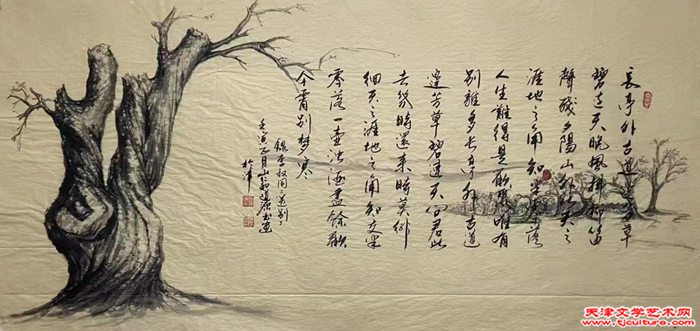 长亭外古道边芳草
碧连天晚风拂柳笛
聲殘夕陽山外山天之
涯地之角知交半零落
人生難得是歡聚唯有
别離多长亭外古道
邊芳草碧连天问君此
去幾時還来時莫徘
徊天之涯地之角知交半
零落一壶浊酒盡餘歡
今宵别梦寒
錄李叔同送别
壬寅正月
於津
天津文学艺术网
www.tjculture.com